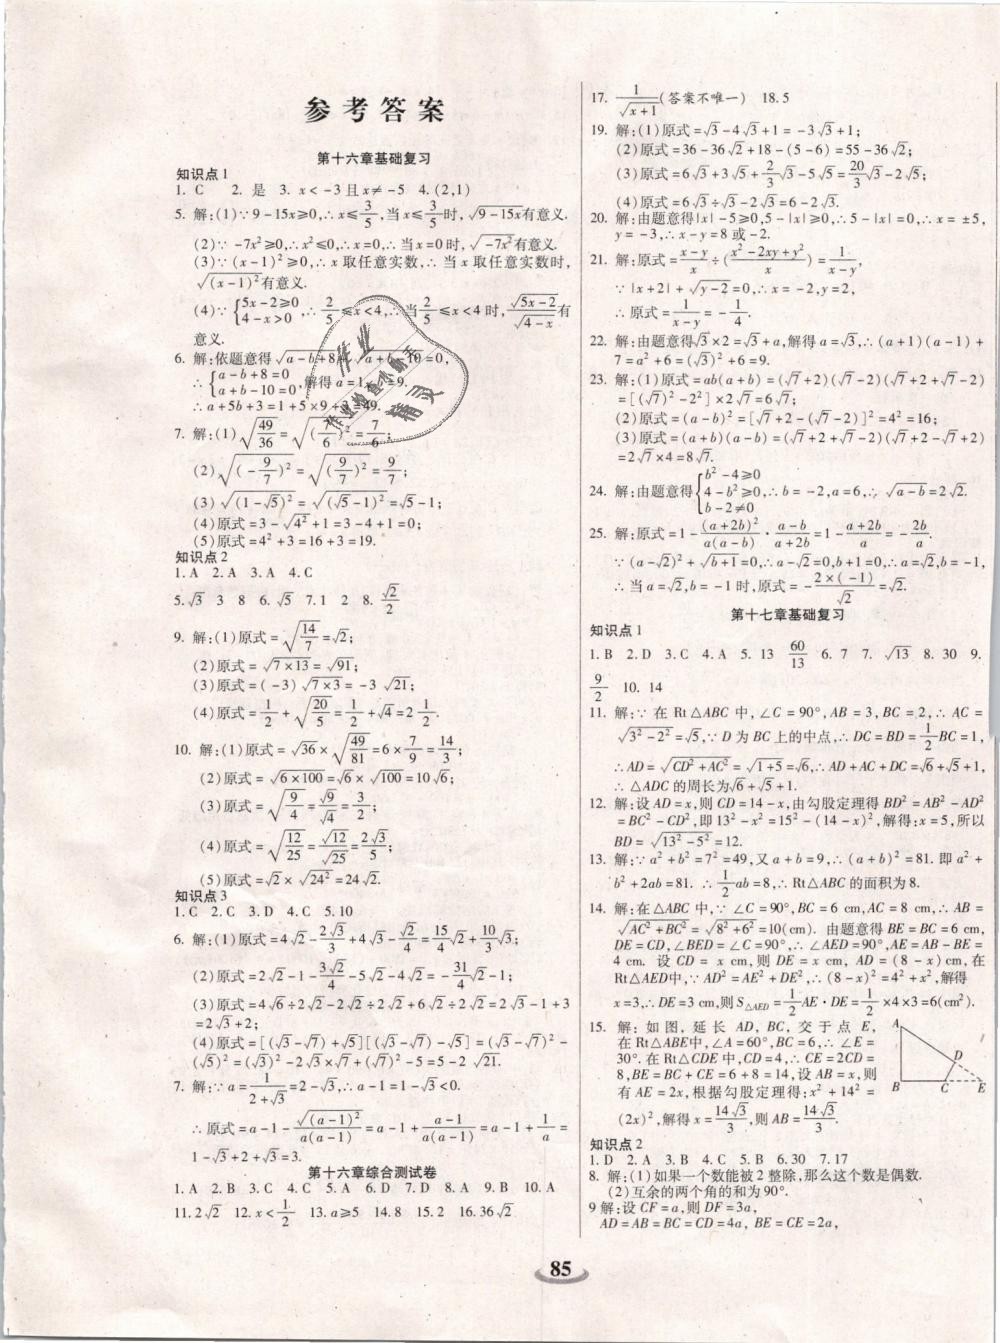 参考答案
第十六章基础复习
知识点1
1. C 2. 是 3. x<-3且x≠-5 4. (2,1)
5. 解:(1)∵9-15x≥0,∴x≤3/5,当x≤3/5时,√(9-15x)有意义.
(2)∵-7x²≥0,∴x²≤0,∴x=0,∴当x=0时,√(-7x²)有意义.
(3)∵(x-1)²≥0,∴x取任意实数,∴当x取任意实数时,
√((x-1)²)有意义.
(4)∵{5x-2≥0 4-x>0,∴2/5≤x<4,∴当2/5≤x<4时,√(5x-2)/√(4-x)有
意义.
6. 解:依题意得√(a-b+8)+√(a+b-10)=0,
∴{a-b+8=0 a+b-10=0,解得a=1,b=9.
∴a+5b+3=1+5×9+3=49.
7. 解:(1)√(49/36)=√((7/6)²)=7/6;
(2)√((-9/7)²)=√((9/7)²)=9/7;
(3)√((1-√5)²)=√((√5-1)²)=√5-1;
(4)原式=3-√(4²)+1=3-4+1=0;
(5)原式=4²+3=16+3=19.
知识点2
1. A 2. A 3. A 4. C
5. √3 3 8 6. √5 7. 1 2 8. √2/2
9. 解:(1)原式=√(14/7)=√2;
(2)原式=√(7×13)=√91;
(3)原式=(-3)√(7×3)=-3√21;
(4)原式=1/2+√(20/5)=1/2+√4=2 1/2.
10. 解:(1)原式=√36×√(49/81)=6×7/9=14/3;
(2)原式=√(6×100)=√6×√100=10√6;
(3)原式=√(9/4)=√9/√4=3/2;
(4)原式=√(12/25)=√12/√25=2√3/5;
(5)原式=√2×√(24²)=24√2.
知识点3
1. C 2. C 3. D 4. C 5. 10
6. 解:(1)原式=4√2-2√3/3+4√3-√2/4=15/4√2+10/3√3;
(2)原式=2√2-1-3√2/4-5√2-4√2=-31/4√2-1;
(3)原式=4√6÷2√2-2√2÷2√2+6√2÷2√2=2√3-1+3
=2√3+2;
(4)原式=[(√3-√7)+√5][(√3-√7)-√5]=(√3-√7)²-
(√5)²=(√3)²-2√3×√7+(√7)²-5=5-2√21.
7. 解:∵a=1/(2+√3)=2-√3,∴a-1=1-√3<0.
∴原式=a-1-√((a-1)²)/(a(a-1))=a-1+(a-1)/(a(a-1))=a-1+1/a=
1-√3+2+√3=3.
第十六章综合测试卷
1. A 2. B 3. C 4. C 5. A 6. D 7. D 8. A 9. B 10. A
11. 2√2 12. x<1/2 13. a≥5 14. 8 15. 2 16. 36√2
17. 1/√(x+1)(答案不唯一) 18. 5
19. 解:(1)原式=√3-4√3+1=-3√3+1;
(2)原式=36-36√2+18-(5-6)=55-36√2;
(3)原式=6√3+3√5+2/3√3-5√5=20/3√3-2√5;
(4)原式=6√3÷√3-2√3=6-2√3.
20. 解:由题意得|x|-5≥0,5-|x|≥0,∴5-|x|=0,∴x=±5,
y=-3,∴x-y=8或-2.
21. 解:原式=(x-y)/x÷((x²-2xy+y²)/x)=1/(x-y),
∵|x+2|+√(y-2)=0,∴x=-2,y=2,
∴原式=1/(x-y)=-1/4.
22. 解:由题意得√3×2=√3+a,解得a=√3,∴(a+1)(a-1)+
7=a²+6=(√3)²+6=9.
23. 解:(1)原式=ab(a+b)=(√7+2)(√7-2)(√7+2+√7-2)
=[(√7)²-2²]×2√7=6√7;
(2)原式=(a-b)²=[√7+2-(√7-2)]²=4²=16;
(3)原式=(a+b)(a-b)=(√7+2+√7-2)(√7+2-√7+2)
=2√7×4=8√7.
24. 解:由题意得{b²-4≥0 4-b²≥0 b-2≠0,∴b=-2,a=6,∴√(a-b)=2√2.
25. 解:原式=1-(a+2b)²/(a(a-b))·(a-b)/(a+2b)=1-(a+2b)/a=-2b/a.
∵(a-√2)²+√(b+1)=0,∴a-√2=0,b+1=0,∴a=√2,b=-1,
∴当a=√2,b=-1时,原式=-2×(-1)/√2=√2.
第十七章基础复习
知识点1
1. B 2. D 3. C 4. A 5. 13 60/13 6. 7 7. √13 8. 30 9.
9/2 10. 14
11. 解:∵在Rt△ABC中,∠C=90°,AB=3,BC=2,∴AC=
√(3²-2²)=√5,∵D为BC上的中点,∴DC=BD=1/2BC=1,
∴AD=√(CD²+AC²)=√(1+5)=√6,∴AD+AC+DC=√6+√5+1,
∴△ADC的周长为√6+√5+1.
12. 解:设AD=x,则CD=14-x,由勾股定理得BD²=AB²-AD²
=BC²-CD²,即13²-x²=15²-(14-x)²,解得:x=5,所以
BD=√(13²-5²)=12.
13. 解:∵a²+b²=7²=49,又a+b=9,∴(a+b)²=81. 即a²+
b²+2ab=81. ∴1/2ab=8,∴Rt△ABC的面积为8.
14. 解:在△ABC中,∵∠C=90°,BC=6 cm,AC=8 cm,∴AB=
√(AC²+BC²)=√(8²+6²)=10(cm). 由题意得BE=BC=6 cm,
DE=CD,∠BED=∠C=90°,∴∠AED=90°,AE=AB-BE=
4 cm. 设CD=x cm,则DE=x cm,AD=(8-x)cm,在
Rt△AED中,∵AD²=AE²+DE²,∴(8-x)²=4²+x²,解得
x=3,∴DE=3 cm,则S△AED=1/2AE·DE=1/2×4×3=6(cm²).
15. 解:如图,延长AD,BC,交于点E,
在Rt△ABE中,∠A=60°,BC=6,∴∠E=
30°.在Rt△CDE中,CD=4,∴CE=2CD=
8,BE=BC+CE=6+8=14,设AB=x,则
有AE=2x,根据勾股定理得:x²+14²=
(2x)²,解得x=14√3/3,则AB=14√3/3.
A
D
B C E
知识点2
1. D 2. A 3. B 4. C 5. B 6. 30 7. 17
8. 解:(1)如果一个数能被2整除,那么这个数是偶数.
(2)互余的两个角的和为90°.
9解:设CF=a,则DF=3a,
AD=AB=BC=CD=4a,BE=CE=2a,
85